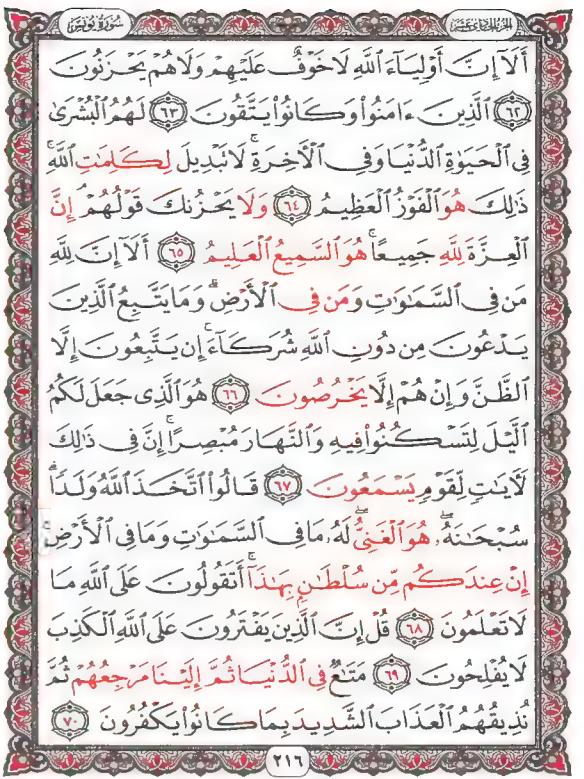 سورة يونس
الجزء الحادي عشر
أَلَآ إِنَّ أَوْلِيَآءَ ٱللَّهِ لَا خَوْفٌ عَلَيْهِمْ وَلَا هُمْ يَحْزَنُونَ
﴿٦٢﴾ ٱلَّذِينَ ءَامَنُوا۟ وَكَانُوا۟ يَتَّقُونَ ﴿٦٣﴾ لَهُمُ ٱلْبُشْرَىٰ
فِى ٱلْحَيَوٰةِ ٱلدُّنْيَا وَفِى ٱلْأَخِرَةِ ۚ لَا تَبْدِيلَ لِكَلِمَٰتِ ٱللَّهِ ۚ
ذَٰلِكَ هُوَ ٱلْفَوْزُ ٱلْعَظِيمُ ﴿٦٤﴾ وَلَا يَحْزُنكَ قَوْلُهُمْ ۘ إِنَّ
ٱلْعِزَّةَ لِلَّهِ جَمِيعًا ۚ هُوَ ٱلسَّمِيعُ ٱلْعَلِيمُ ﴿٦٥﴾ أَلَآ إِنَّ لِلَّهِ
مَن فِى ٱلسَّمَٰوَٰتِ وَمَن فِى ٱلْأَرْضِ ۗ وَمَا يَتَّبِعُ ٱلَّذِينَ
يَدْعُونَ مِن دُونِ ٱللَّهِ شُرَكَآءَ ۚ إِن يَتَّبِعُونَ إِلَّا
ٱلظَّنَّ وَإِنْ هُمْ إِلَّا يَخْرُصُونَ ﴿٦٦﴾ هُوَ ٱلَّذِى جَعَلَ لَكُمُ
ٱلَّيْلَ لِتَسْكُنُوا۟ فِيهِ وَٱلنَّهَارَ مُبْصِرًا ۚ إِنَّ فِى ذَٰلِكَ
لَأَيَٰتٍ لِّقَوْمٍ يَسْمَعُونَ ﴿٦٧﴾ قَالُوا۟ ٱتَّخَذَ ٱللَّهُ وَلَدًا ۗ
سُبْحَٰنَهُۥ ۖ هُوَ ٱلْغَنِىُّ ۖ لَهُۥ مَا فِى ٱلسَّمَٰوَٰتِ وَمَا فِى ٱلْأَرْضِ ۚ
إِنْ عِندَكُم مِّن سُلْطَٰنٍۭ بِهَٰذَآ ۚ أَتَقُولُونَ عَلَى ٱللَّهِ مَا
لَا تَعْلَمُونَ ﴿٦٨﴾ قُلْ إِنَّ ٱلَّذِينَ يَفْتَرُونَ عَلَى ٱللَّهِ ٱلْكَذِبَ
لَا يُفْلِحُونَ ﴿٦٩﴾ مَتَٰعٌ فِى ٱلدُّنْيَا ثُمَّ إِلَيْنَا مَرْجِعُهُمْ ثُمَّ
نُذِيقُهُمُ ٱلْعَذَابَ ٱلشَّدِيدَ بِمَا كَانُوا۟ يَكْفُرُونَ ﴿٧٠﴾
٢١٦